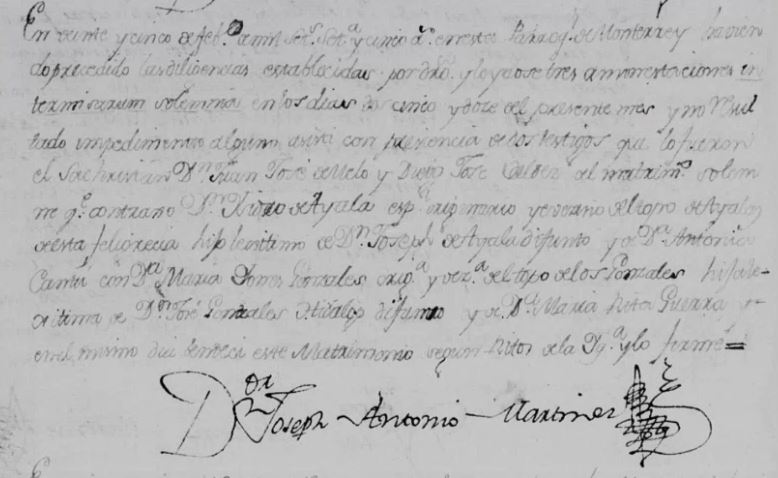 En veinte y cinco de feb.º de mil set.s set.ª y cinco a.s en esta Parroq.l de Monterrey havien
do precedido las dilicencias establecidas por dro. y leydose tres amonestaciones in
ter misarum solemnia en los dias dos cinco y doze del presente mes y no resul
tado impedimento alguno asisti con precencia de los testigos que lo fueron
el Sachristan D.n Juan José de Melo y Diego José Valdez al matrim.º solem
ne q.e contrajo D.n Ysidro de Ayala esp.l origenario y vecino del topo de Ayalas
de esta feligrecia hijo lexitimo de D.n Joseph de Ayala difunto y de D.ª Antonia
Cantú con D.ª Maria Gonzales orig.ª y vez.ª del topo de los Gonzales hija le-
xitima de D.n José Gonzales Hidalgo difunto y de D.ª Maria Rita Guerra y
en el mismo dia bendeci este Matrimonio segun Ritos de la Yg.ª y lo firmé =
D.or D.n Joseph Antonio Martinez